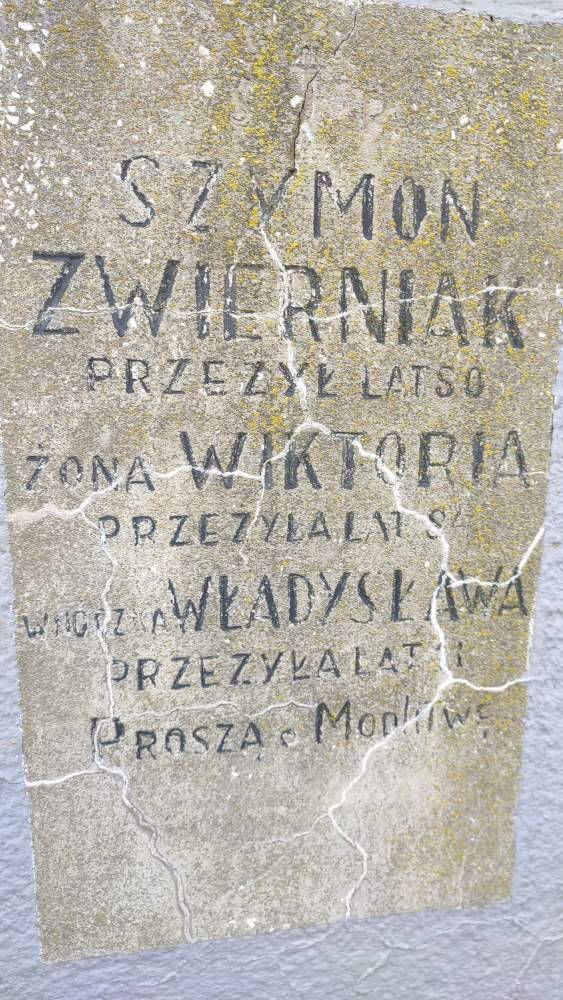 SZYMON
ZWIERNIAK
PRZEZYŁ LAT 50
ŻONA WIKTORIA
PRZEZYŁA LAT 84
WNUCZKA WŁADYSŁAWA
PRZEZYŁA LAT
PROSZĄ o Modlitwę